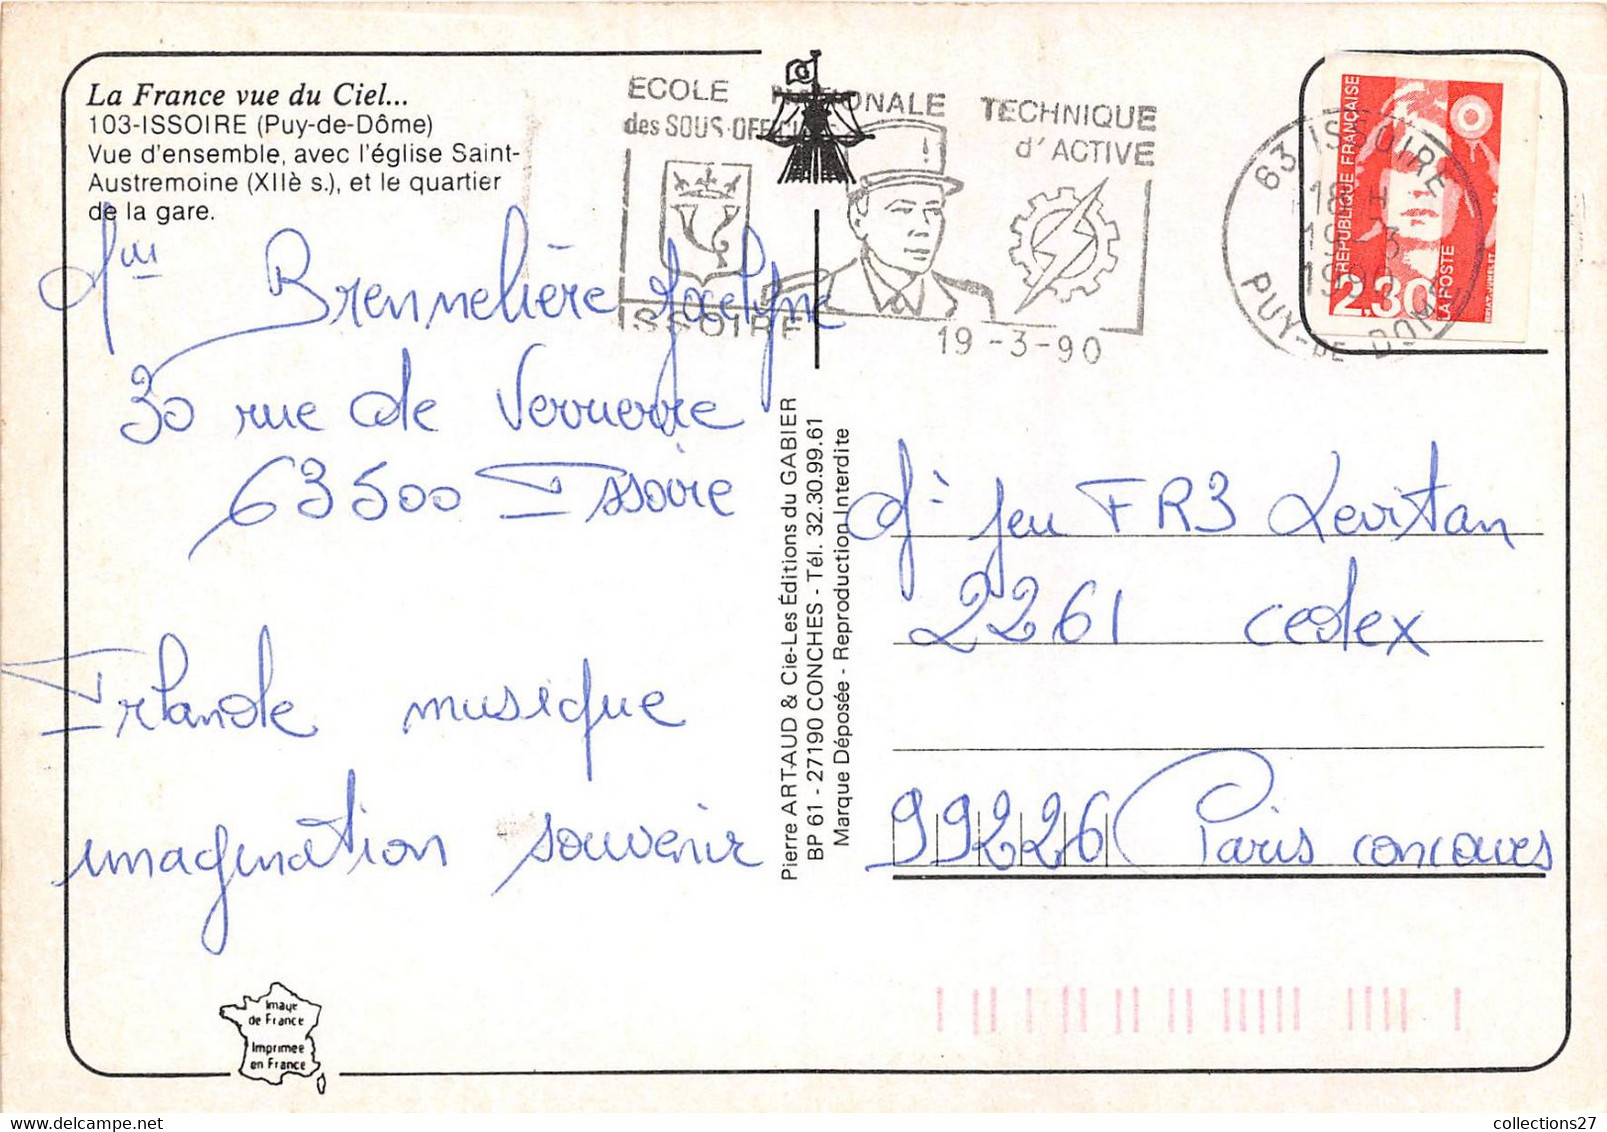 La France vue du Ciel...
103-ISSOIRE (Puy-de-Dôme)
Vue d'ensemble, avec l'église Saint-
Austremoine (XIIè s.), et le quartier
de la gare.
ECOLE NATIONALE TECHNIQUE
des SOUS-OFFICIERS d'ACTIVE
ISSOIRE
19-3-90
63 ISSOIRE
18 H
19-3
1990
PUY-DE-DOME
REPUBLIQUE FRANÇAISE
2.30
LA POSTE
Brennelière Jocelyne
30 rue de
63500 Issoire
Irlande musique
imagination souvenir
Pierre ARTAUD & Cie-Les Éditions du GABIER
BP 61 - 27190 CONCHES - Tél. 32.30.99.61
Marque Déposée - Reproduction Interdite
jeu FR3 Levitan
2261 cedex
99226 Paris concours
Image
de France
Imprimée
en France
collections27